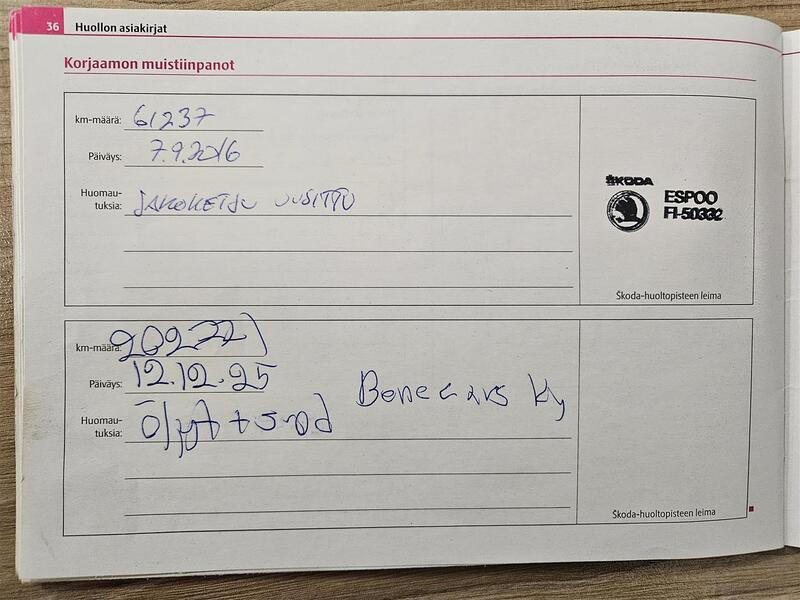 36 Huollon asiakirjat
Korjaamon muistiinpanot
km-määrä: 61237
Päiväys: 7.9.2016
Huomau-
tuksia: JAKOKETJU UUSITTU
ŠKODA
ESPOO
FI-50332
Škoda-huoltopisteen leima
km-määrä: 202721
Päiväys: 12.12.25
Bonecars Ky
Huomau-
tuksia: Öljyt +
Škoda-huoltopisteen leima